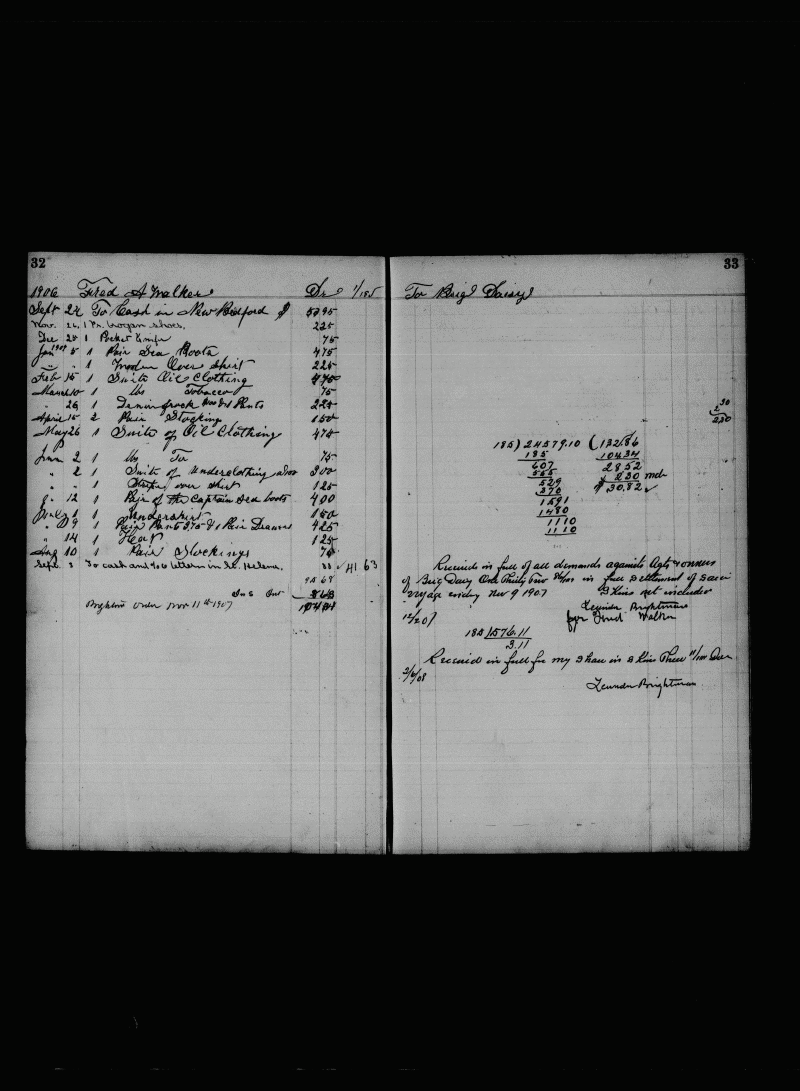 32
1906 Fred A Walker Dr 1/185
Sept 22 To Cash in New Bedford $ 5295
Nov. 26 1 Pr. brogan shoes. 225
Dec 25 1 Pocket Knife 75
Jan 1907 5 1 Pair Sea Boots 475
" " 1 Woolen Over Shirt 225
Feb 15 1 Suite Oil Clothing 475
March 10 1 lb Tobacco 75
" 29 1 frock & 1 Pants 225
April 15 2 Pair Stockings 150
May 26 1 Suite of Oil Clothing 475
June 2 1 75
" 2 1 Suite of Underclothing 300
" " 1 over shirt 125
" 12 1 Pair of the Captain Sea boots 400
July 1 1 Undershirt 150
" 9 1 Pair Pants & 1 Pair Drawers 425
" 14 1 125
Aug 10 1 Pair Stockings 75
Sept. 3 To cash and letters in St. Helena. 41 63
95 68
Ins
Brightons order Nov 11th 1907
33
To Brig Daisy
230
185)24579.10 (132.86
185 104 34
607 28 52
555 2 30
529 $ 30.82
370
1591
1480
1110
1110
Received in full of all demands against Agts & owners
of Brig Daisy One Thirty two 86/100 in full settlement of
voyage ending Nov 9 1907 not included
Brightman
12/20/ for Fred Walker
185)576.11
3.11
Received in full for my Share in Three 11/100
2/6/08
Brightman